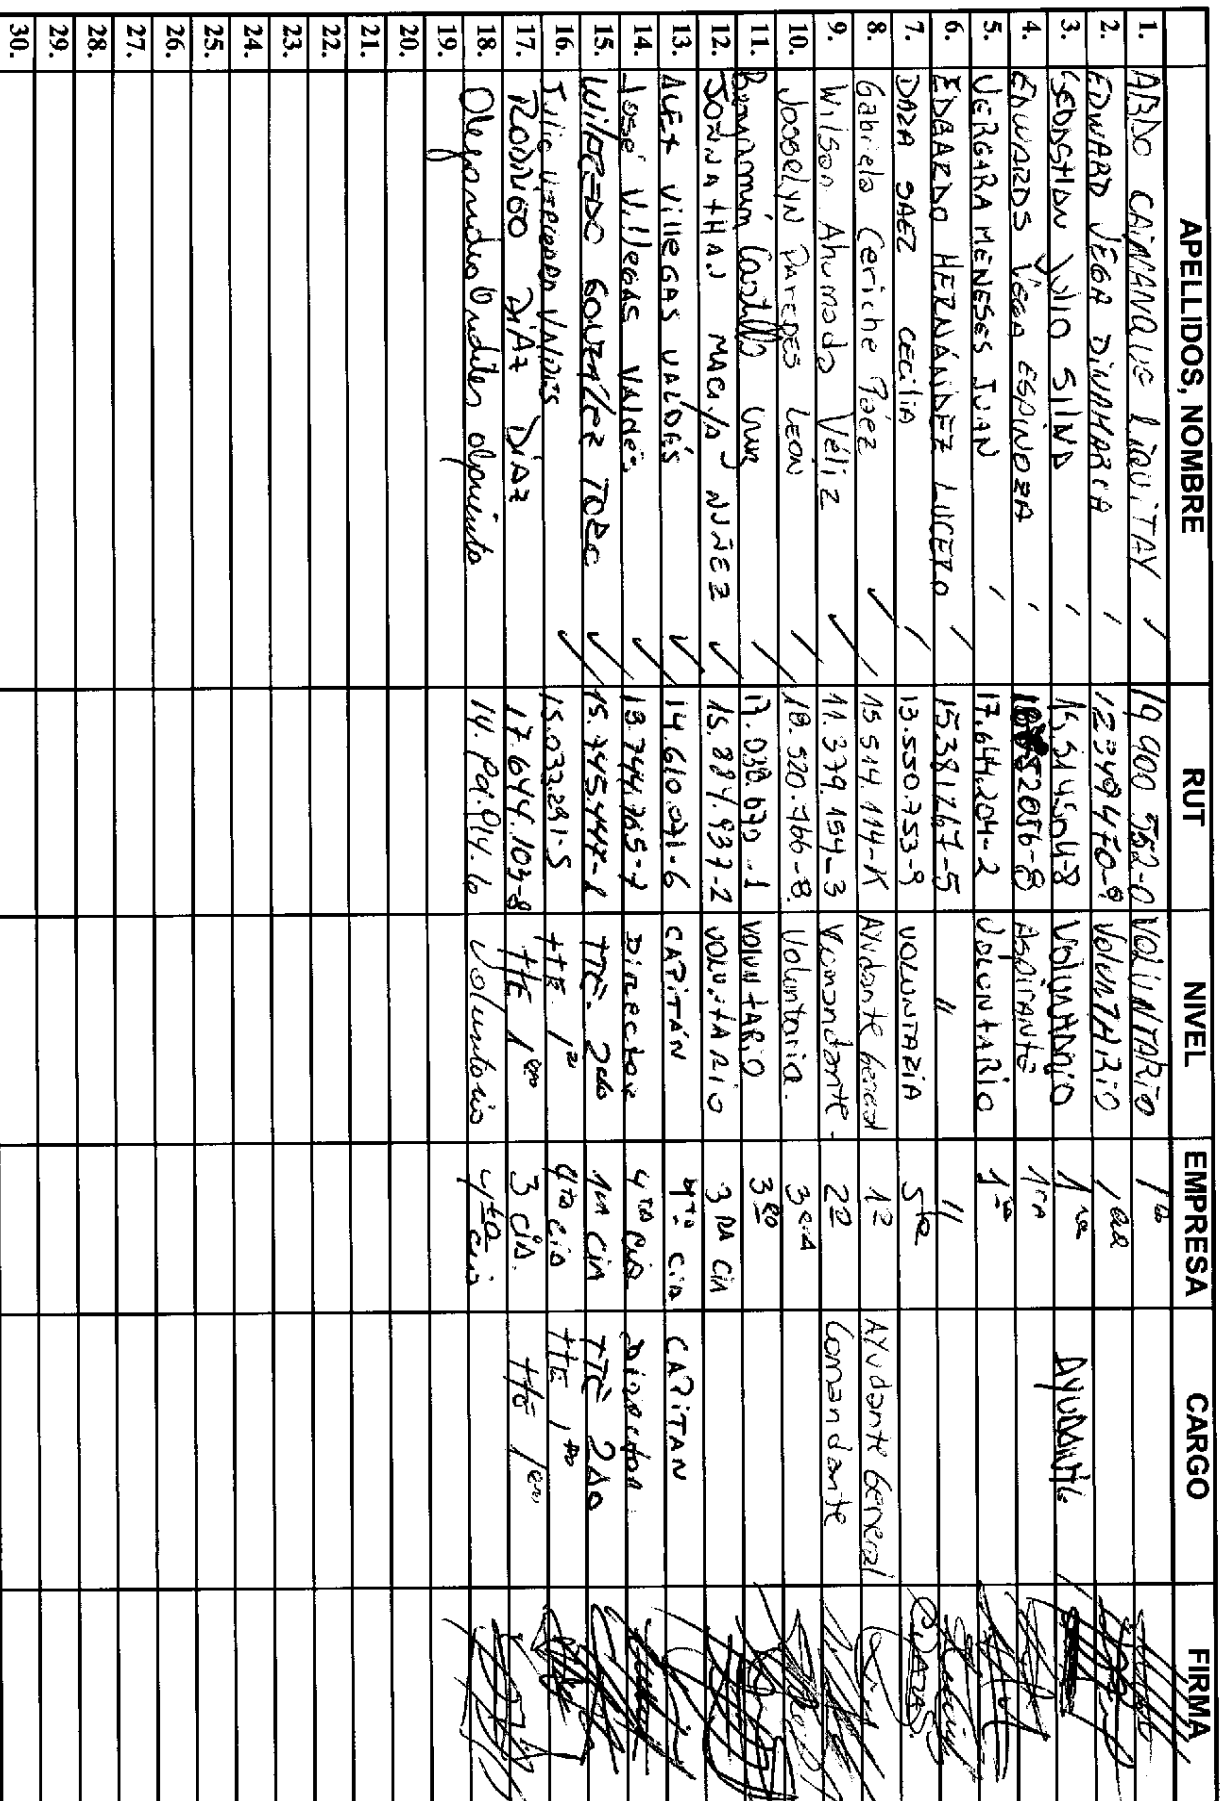 APELLIDOS, NOMBRE RUT NIVEL EMPRESA CARGO FIRMA
1. ABDO CAIMANQUE LIQUITAY 19 900 552-0 VOLUNTARIO 1ra
2. EDWARD VEGA DINAMARCA 12349470-9 VOLUNTARIO 1era
3. SEBASTIAN Julio SILVA 15.514504-8 VOLUNTARIO 1ra AYUDANTE
4. EDWARDS VEGA ESPINOZA 52056-8 ASPIRANTE 1ra
5. VERGARA MENESES JUAN 17.644.204-2 VOLUNTARIO 1ra
6. EDGARDO HERNÁNDEZ LUCERO 15.381267-5 " "
7. DAZA SAEZ CECILIA 13.550.753-9 VOLUNTARIA 5ta
8. Gabriela Ceriche Páez 15 514.114-K Ayudante General 1ª Ayudante General
9. Wilson Ahumada Véliz 11.379 154-3 V Comandante. 2ª Comandante
10. Josselyn Paredes LEON 18.520.766-8. Voluntaria. 3era
11. Benjamin Castillo Cruz 17.038.670-1 VOLUNTARIO 3ra
12. JONNATHAN MACAYA NUÑEZ 15.884.937-2 VOLUNTARIO 3 RA CIA
13. ALEX VILLEGAS VALDÉS 14.610.071-6 CAPITÁN 4ta CIA CAPITAN
14. José Villegas Valdés 13.744.765-7 Director 4ta CIA Director
15. WILFREDO GONZALEZ TORO 15.745.447-1 TTE. 2do 1ra CIA TTE 2do
16. Julio VERGARA VALDES 15.033.291-5 tte 1ro 4ta CIA tte 1ro
17. RODRIGO DIAZ DIAZ 17.644.103-8 tte 1ero 3 CIA. tte 1ero
18. voluntario 4ta cia
19.
20.
21.
22.
23.
24.
25.
26.
27.
28.
29.
30.